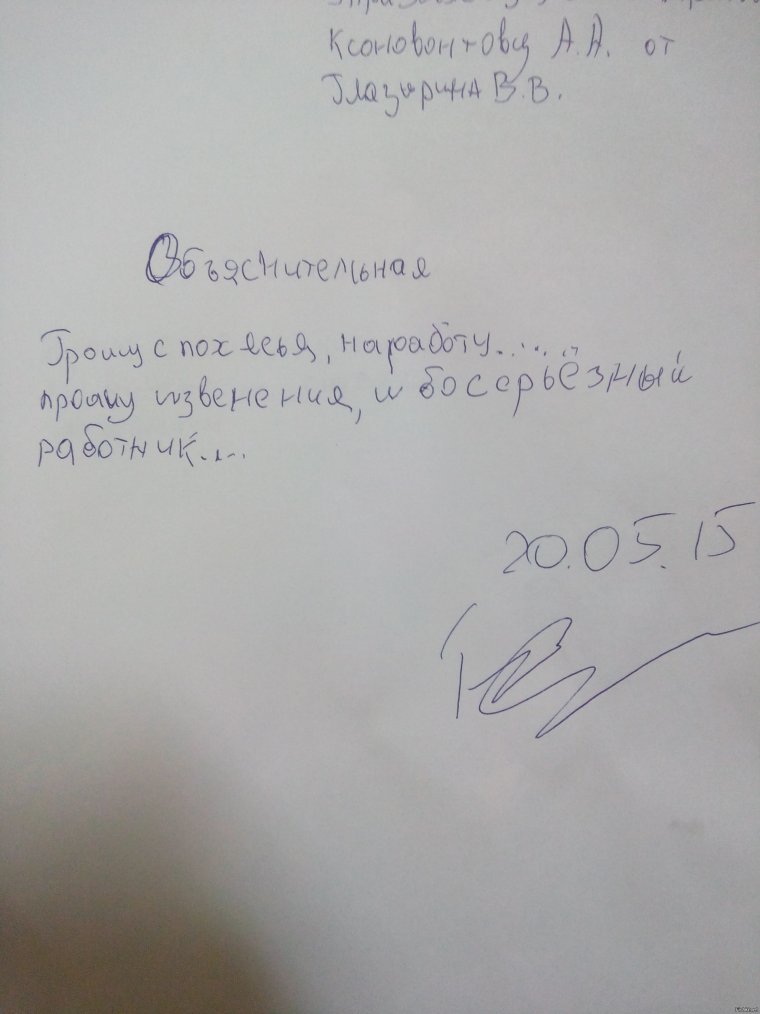 Ксоновонтову А.А. от
Глазырина В.В.
Объяснительная
с похмелья, на работу.....
прошу извенения, и босерьёзный
работник....
20.05.15